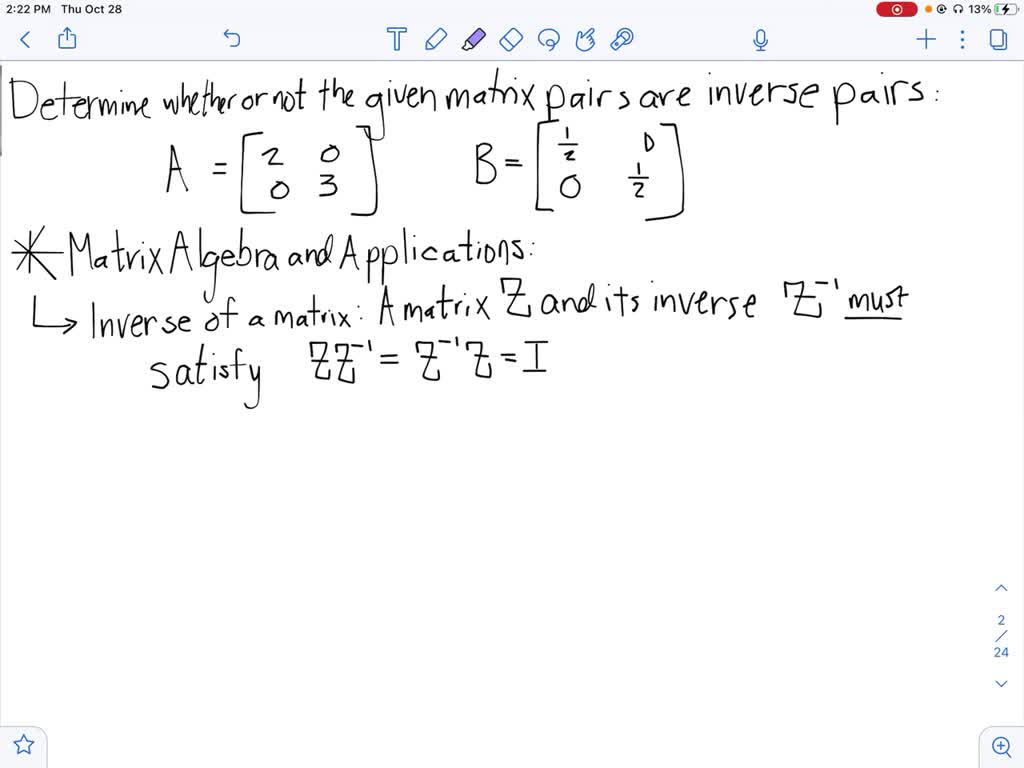 2:22 PM Thu Oct 28 13%
Determine whether or not the given matrix pairs are inverse pairs:
A = [2 0
0 3] B = [1/2 0
0 1/2]
* Matrix Algebra and Applications:
↳ Inverse of a matrix: A matrix Z and its inverse Z⁻¹ must
satisfy ZZ⁻¹ = Z⁻¹Z = I
2
/
24